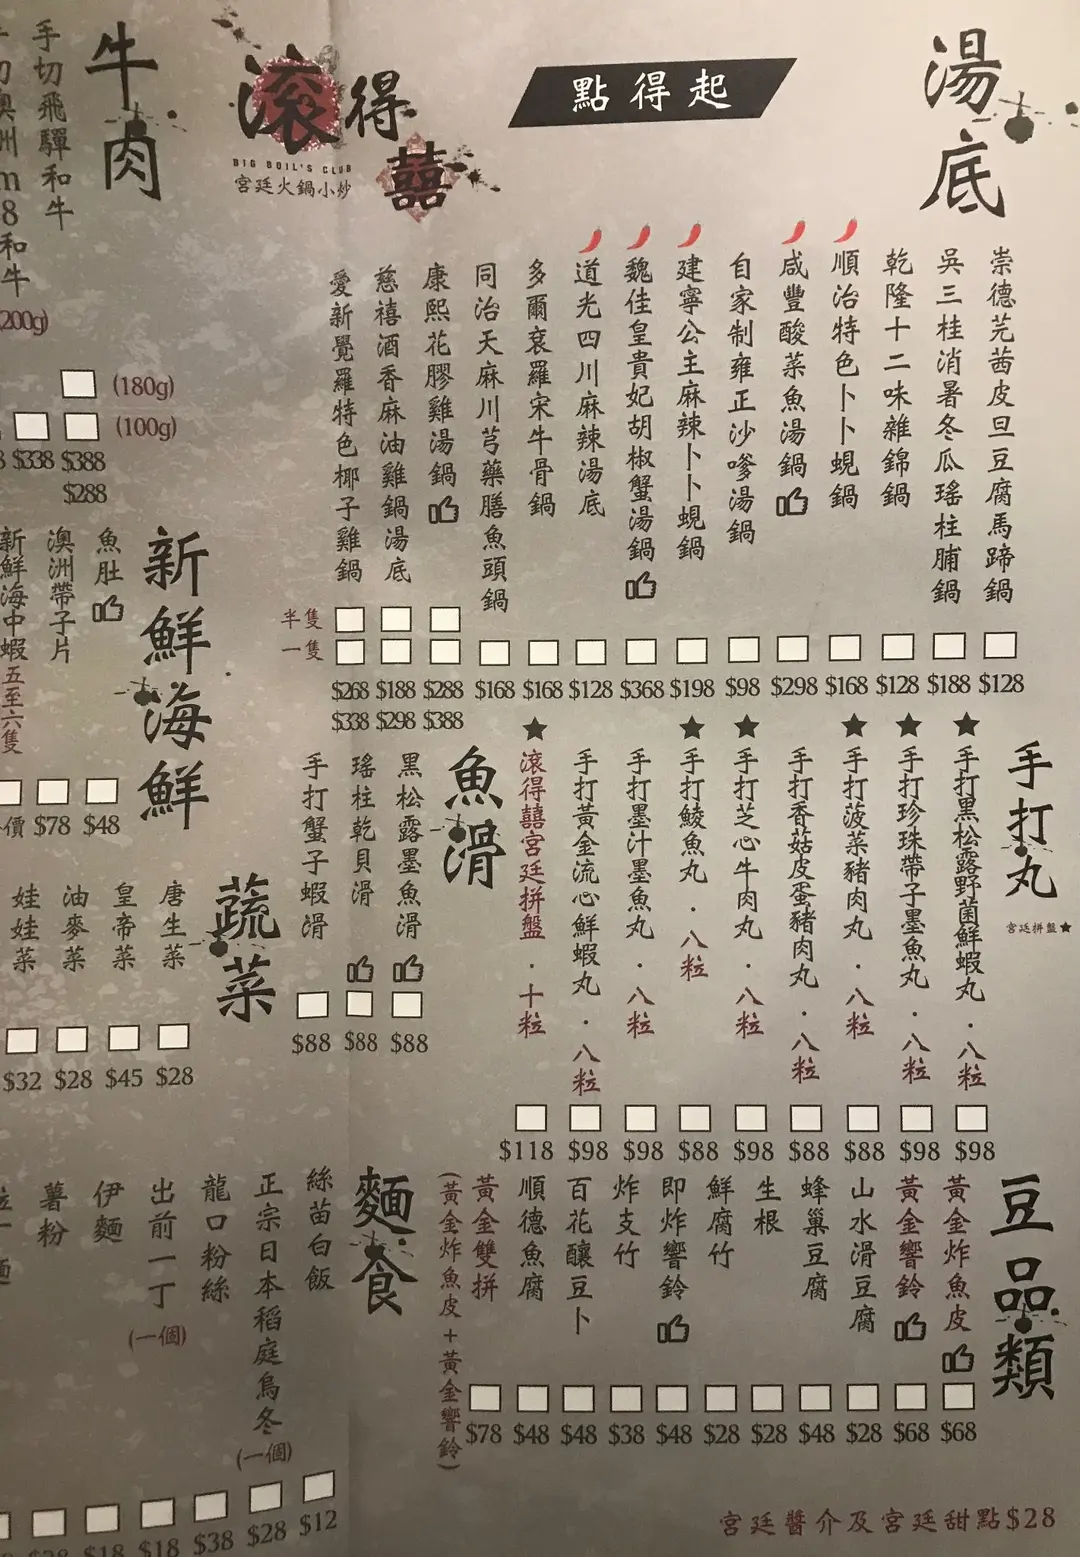 點得起
滾得囍
BIG BOIL'S CLUB
宮廷火鍋小炒
湯底
崇德芫茜皮蛋豆腐馬蹄鍋 $128
吳三桂消暑冬瓜瑤柱脯鍋 $188
乾隆十二味雜錦鍋 $128
順治特色卜卜蜆鍋 $168
咸豐酸菜魚湯鍋 $298
自家制雍正沙嗲湯鍋 $98
建寧公主麻辣卜卜蜆鍋 $198
魏佳皇貴妃胡椒蟹湯鍋 $368
道光四川麻辣湯底 $128
多爾袞羅宋牛骨鍋 $168
同治天麻川芎藥膳魚頭鍋 $168
康熙花膠雞湯鍋 $288 $388
慈禧酒香麻油雞鍋湯底 $188 $298
愛新覺羅特色椰子雞鍋 $268 $338
半隻
一隻
手打丸
宮廷拼盤★
手打黑松露野菌鮮蝦丸．八粒 $98
手打珍珠帶子墨魚丸．八粒 $98
手打菠菜豬肉丸．八粒 $88
手打香菇皮蛋豬肉丸．八粒 $88
手打芝心牛肉丸．八粒 $98
手打鯪魚丸．八粒 $88
手打墨汁墨魚丸．八粒 $98
手打黃金流心鮮蝦丸．八粒 $98
滾得囍宮廷拼盤．十粒 $118
魚滑
黑松露墨魚滑 $88
瑤柱乾貝滑 $88
手打蟹子蝦滑 $88
豆品類
黃金炸魚皮 $68
黃金響鈴 $68
山水滑豆腐 $28
蜂巢豆腐 $48
生根 $28
鮮腐竹 $28
即炸響鈴 $48
炸支竹 $38
百花釀豆卜 $48
順德魚腐 $48
黃金雙拼 $78
(黃金炸魚皮+黃金響鈴)
麵食
絲苗白飯 $12
正宗日本稻庭烏冬(一個) $28
龍口粉絲 $38
出前一丁(一個) $18
伊麵 $18
薯粉
牛肉
手切飛驒和牛
和牛
(200g)
(180g)
(100g)
$338 $388
$288
新鮮海鮮
魚肚 $48
澳洲帶子片 $78
新鮮海中蝦五至六隻
蔬菜
唐生菜 $28
皇帝菜 $45
油麥菜 $28
娃娃菜 $32
宮廷醬介及宮廷甜點$28